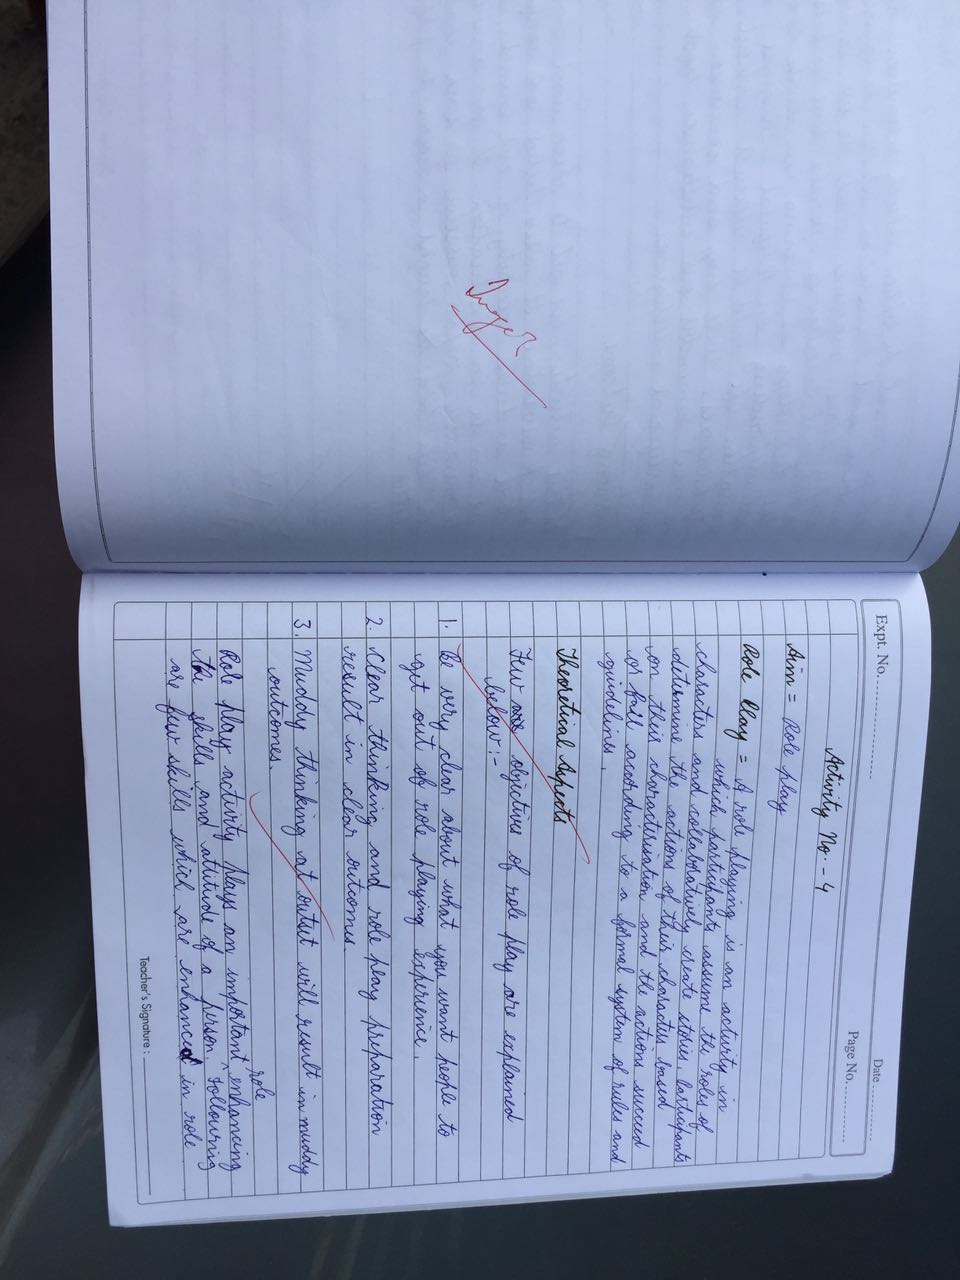 Expt. No.
Date
Page No.
Activity No. - 4
Aim = Role play
Role Play = A role playing is an activity in
which participants assume the roles of
characters and collaboratively create stories. Participants
determine the actions of their characters based
on their characterisation and the actions succeed
or fail according to a formal system of rules and
guidelines.
Theoretical Aspects
Few are objectives of role play are explained
below:-
1. Be very clear about what you want people to
get out of role playing experience.
2. Clear thinking and role play preparation
result in clear outcomes.
3. Muddy thinking at outset will result in muddy
outcomes.
Role play activity plays an important role enhancing
the skills and attitude of a person. Following
are few skills which are enhanced in role
Teacher's Signature :